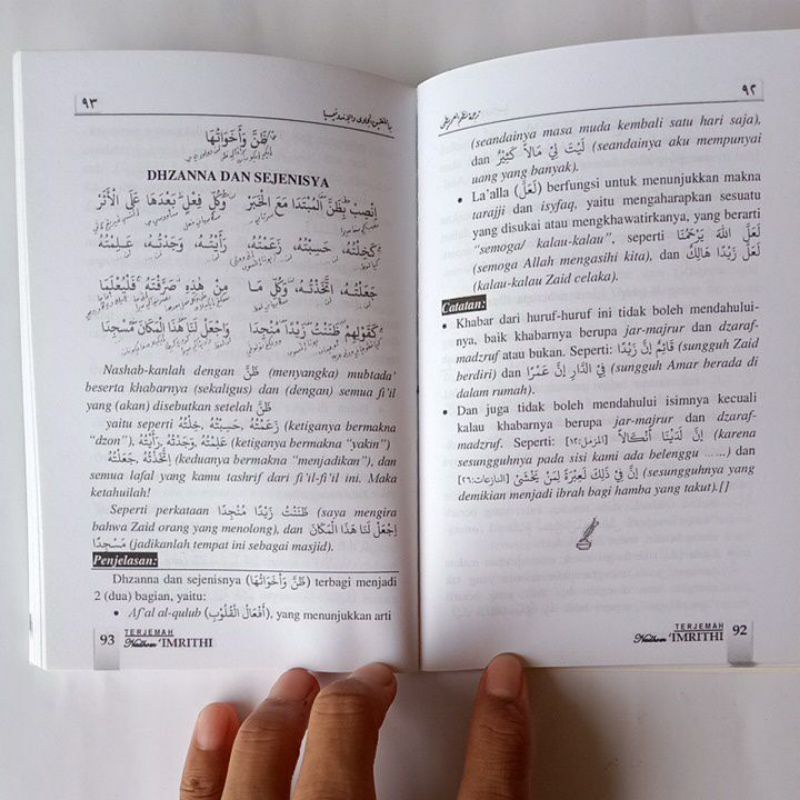 ٩٢
ترجمة نظم العمريطي
(seandainya masa muda kembali satu hari saja),
dan لَيْتَ لِيْ مَالاً كَثِيْرً (seandainya aku mempunyai
uang yang banyak).
• La'alla (لَعَلَّ) berfungsi untuk menunjukkan makna
tarajji dan isyfaq, yaitu mengaharapkan sesuatu
yang disukai atau mengkhawatirkanya, yang berarti
"semoga/ kalau-kalau", seperti لَعَلَّ اللهَ يَرْحَمُنَا
(semoga Allah mengasihi kita), dan لَعَلَّ زَيْدًا هَالِكٌ
(kalau-kalau Zaid celaka).
Catatan:
• Khabar dari huruf-huruf ini tidak boleh mendahului-
nya, baik khabarnya berupa jar-majrur dan dzaraf-
madzruf atau bukan. Seperti: قَائِمٌ إِنَّ زَيْدًا (sungguh Zaid
berdiri) dan فِي الدَّارِ إِنَّ عَمْرًا (sungguh Amar berada di
dalam rumah).
• Dan juga tidak boleh mendahului isimnya kecuali
kalau khabarnya berupa jar-majrur dan dzaraf-
madzruf. Seperti: إِنَّ لَدَيْنَا أَنْكَالاً [المزمل:١٢] (karena
sesungguhnya pada sisi kami ada belenggu ......) dan
إِنَّ فِيْ ذَلِكَ لَعِبْرَةً لِمَنْ يَخْشَىٰ [النازعات:٢٦] (sesungguhnya yang
demikian menjadi ibrah bagi hamba yang takut).[]
TERJEMAH
Nadhom 'IMRITHI
92
٩٣
ظَنَّ وَأَخَوَاتُهَا
DHZANNA DAN SEJENISYA
اِنْصِبْ بِظَنَّ الْمُبْتَدَا مَعَ الْخَبَرْ وَكُلِّ فِعْلٍ بَعْدَهَا عَلَى الْأَثَرْ
كَخِلْتُهُ، حَسِبْتُهُ، زَعَمْتُهُ، رَأَيْتُهُ، وَجَدْتُهُ، عَلِمْتُهُ
جَعَلْتُهُ، اتَّخَذْتُهُ، وَكُلِّ مَا مِنْ هٰذِهِ صَرَّفْتَهُ فَلْيُعْلَمَا
كَقَوْلِهِمْ ظَنَنْتُ زَيْدًا مُنْجِدَا وَاجْعَلْ لَنَا هٰذَا الْمَكَانَ مَسْجِدَا
Nashab-kanlah dengan ظَنَّ (menyangka) mubtada'
beserta khabarnya (sekaligus) dan (dengan) semua fi'il
yang (akan) disebutkan setelah ظَنَّ
yaitu seperti زَعَمْتُهُ, حَسِبْتُهُ, خِلْتُهُ (ketiganya bermakna
"dzon"), عَلِمْتُهُ, وَجَدْتُهُ, رَأَيْتُهُ (ketiganya bermakna "yakin")
اِتَّخَذْتُهُ, جَعَلْتُهُ (keduanya bermakna "menjadikan"), dan
semua lafal yang kamu tashrif dari fi'il-fi'il ini. Maka
ketahuilah!
Seperti perkataan ظَنَنْتُ زَيْدًا مُنْجِدًا (saya mengira
bahwa Zaid orang yang menolong), dan اِجْعَلْ لَنَا هَذَا الْمَكَانَ
مَسْجِدًا (jadikanlah tempat ini sebagai masjid).
Penjelasan:
Dhzanna dan sejenisnya (ظَنَّ وَأَخَوَاتُهَا) terbagi menjadi
2 (dua) bagian, yaitu:
• Af'al al-qulub (أَفْعَالُ الْقُلُوْبِ), yang menunjukkan arti
93
TERJEMAH
Nadhom 'IMRITHI